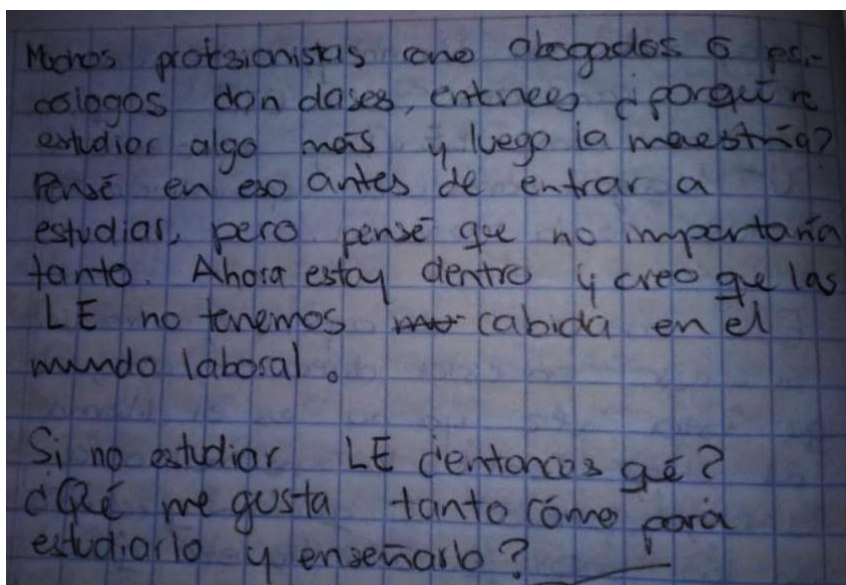 Muchos profesionistas como abogados ó psi-
cólogos dan clases, entonces ¿porqué
estudiar algo más y luego la maestría?
Pensé en eso antes de entrar a
estudiar, pero pensé que no importaría
tanto. Ahora estoy dentro y creo que las
LE no tenemos cabida en el
mundo laboral.
Si no estudiar LE ¿entonces qé?
¿Qé me gusta tanto cómo para
estudiarlo y enseñarlo?